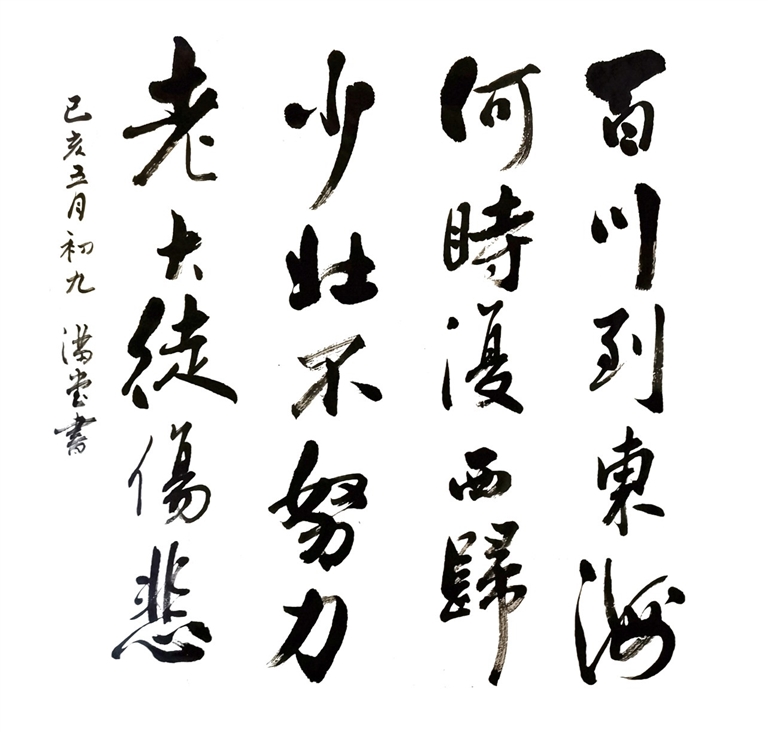 百川到東海
何時復西歸
少壯不努力
老大徒傷悲
己亥五月初九 滿堂書